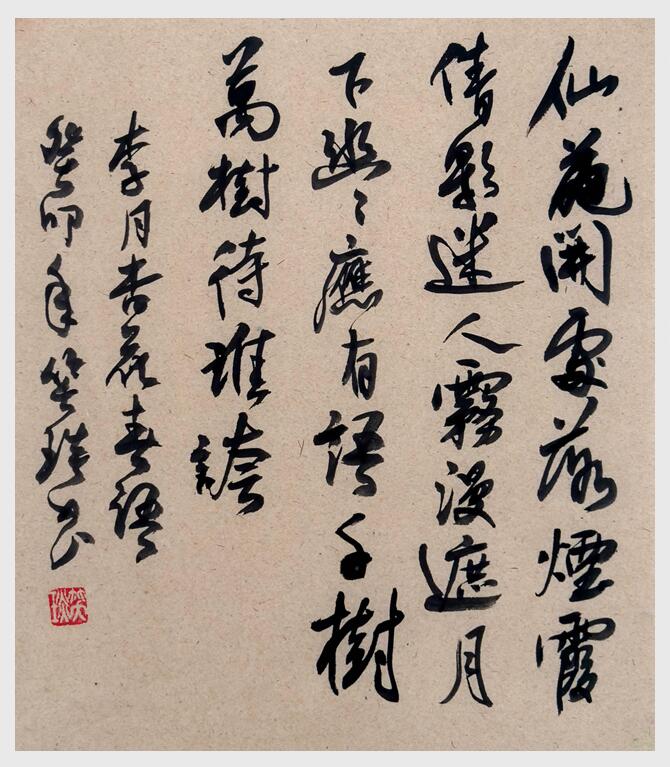 仙葩開處落煙霞
倩影迷人霧漫遮月
下幽々應有語千樹
萬樹待誰誇
李月杏花春語
癸卯年笑琰書
笑琰